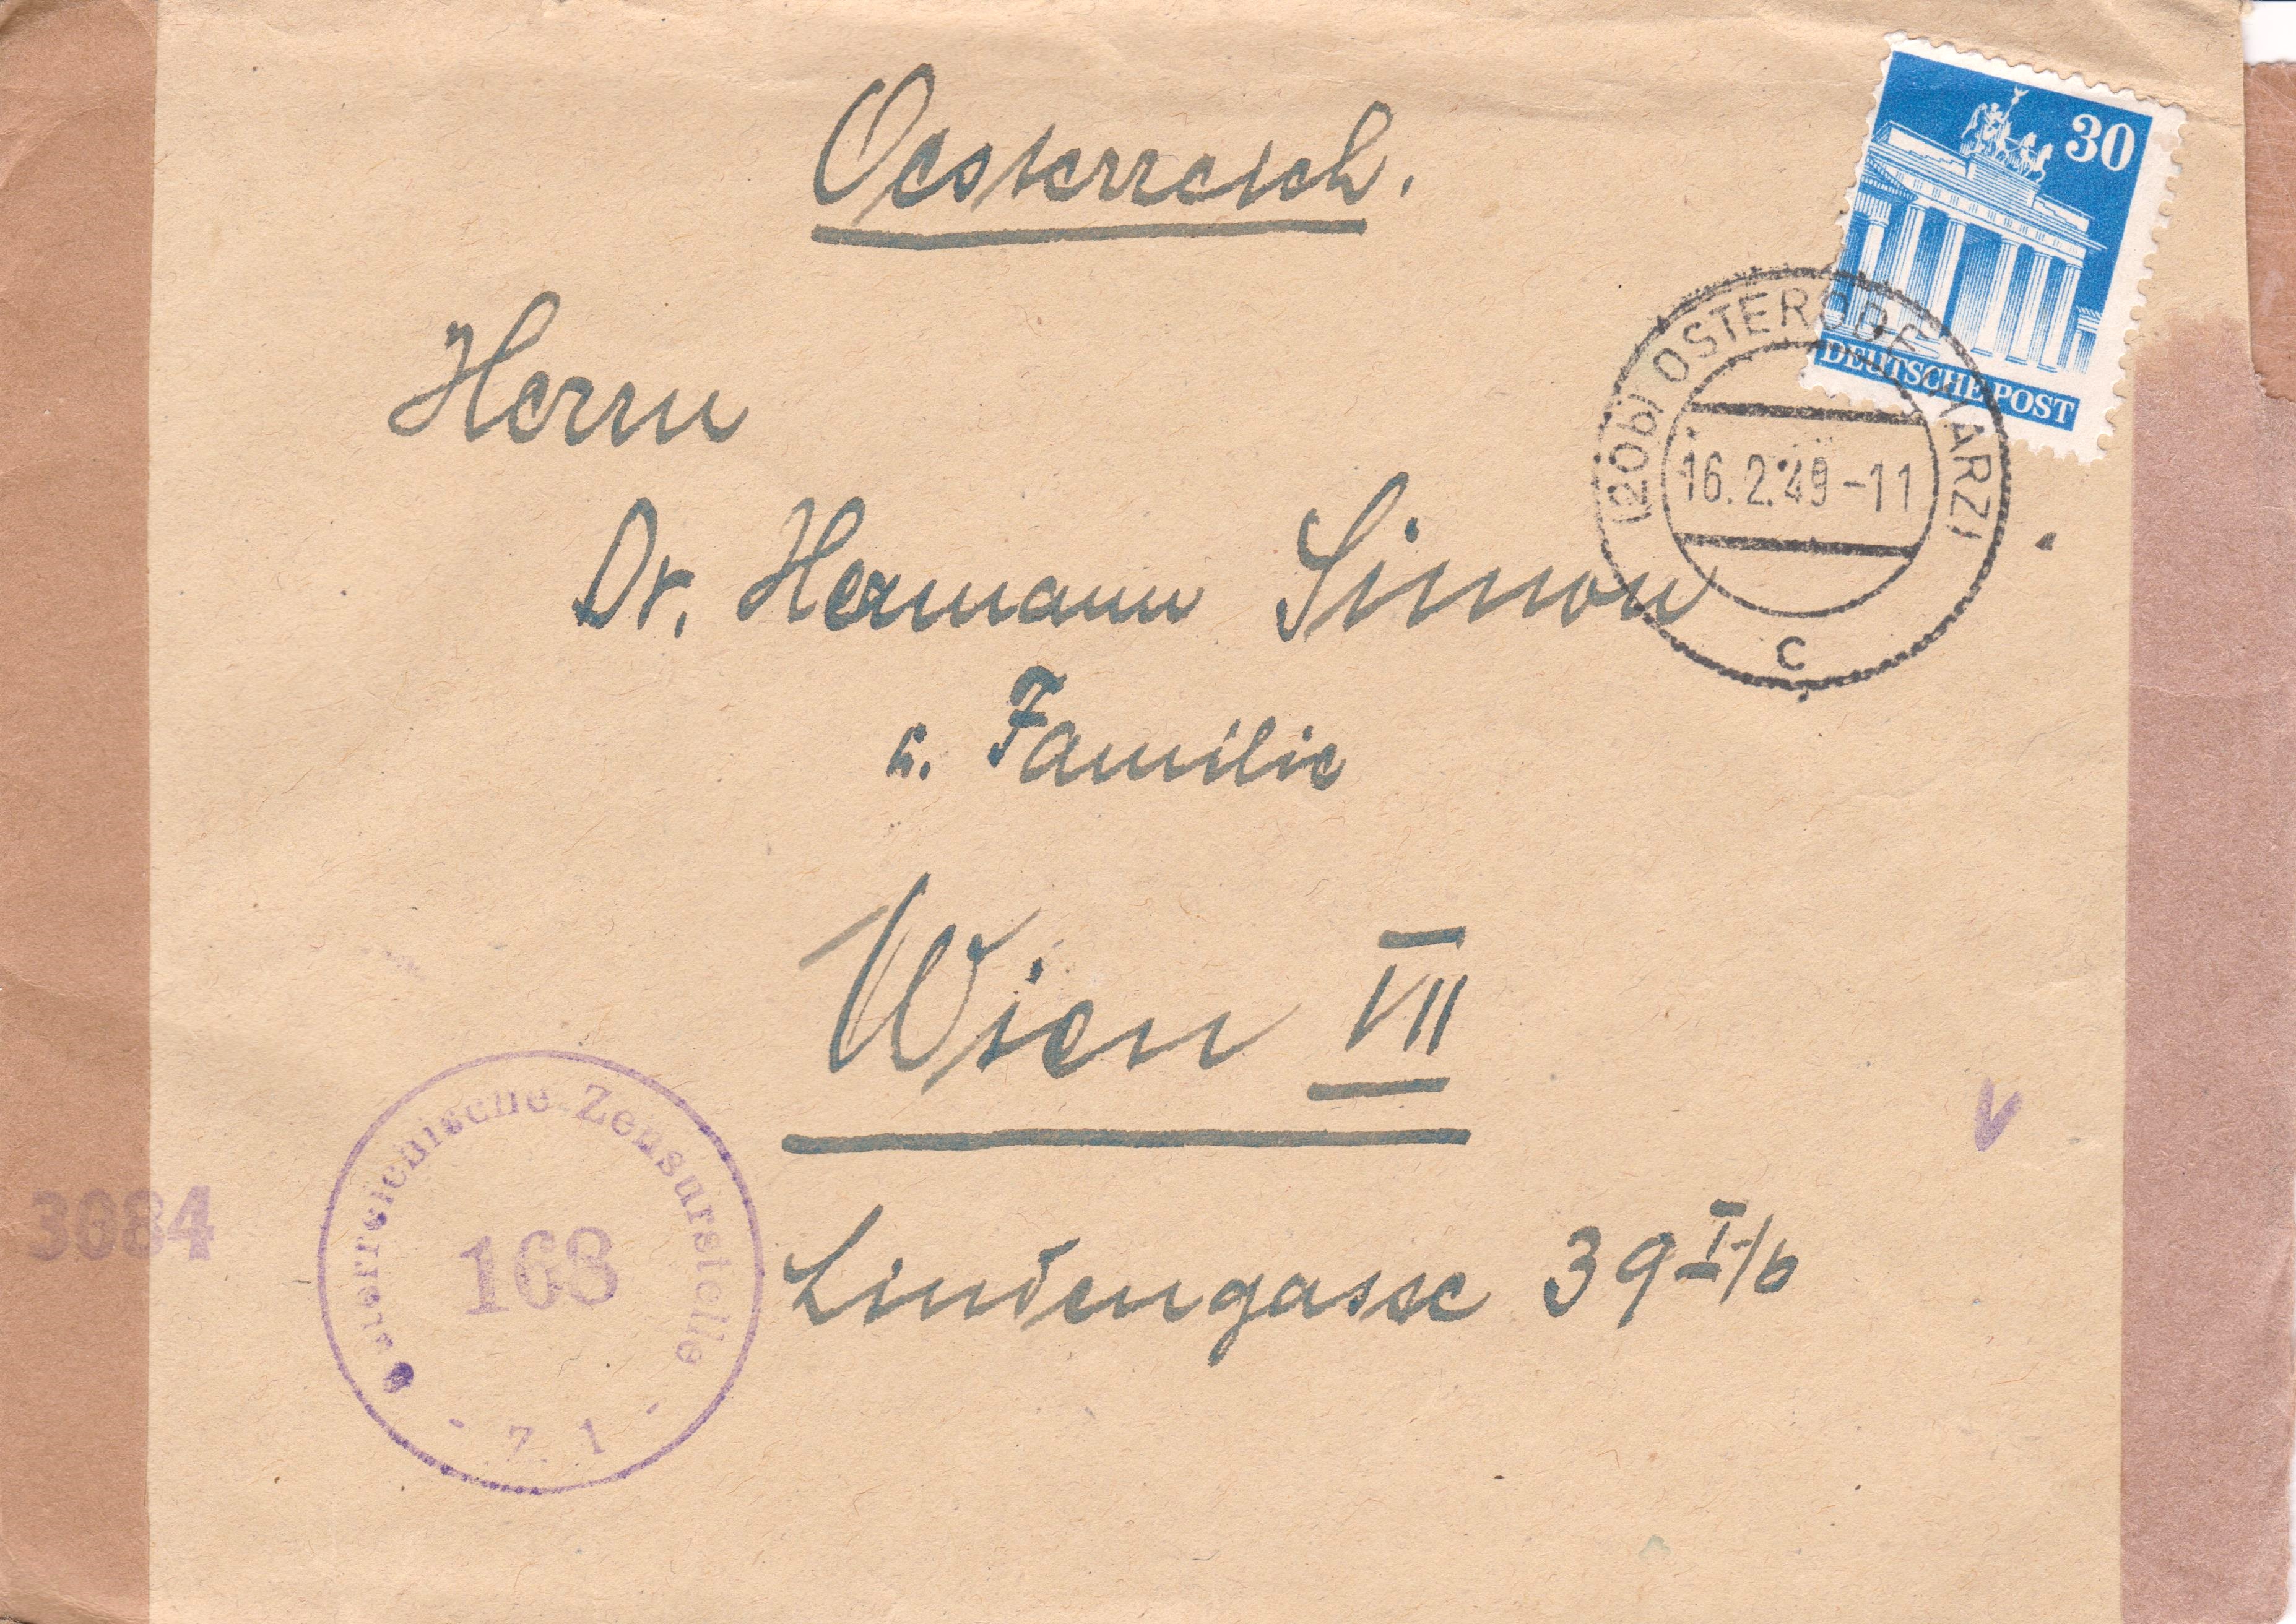 Oesterreich.
30
DEUTSCHE POST
(20b) OSTERODE (HARZ)
16.2.49-11
c
Herrn
Dr. Hermann Simon
u. Familie
Wien VII
Lindengasse 39 I/6
Oesterreichische Zensurstelle
168
- Z 1 -
3084
V